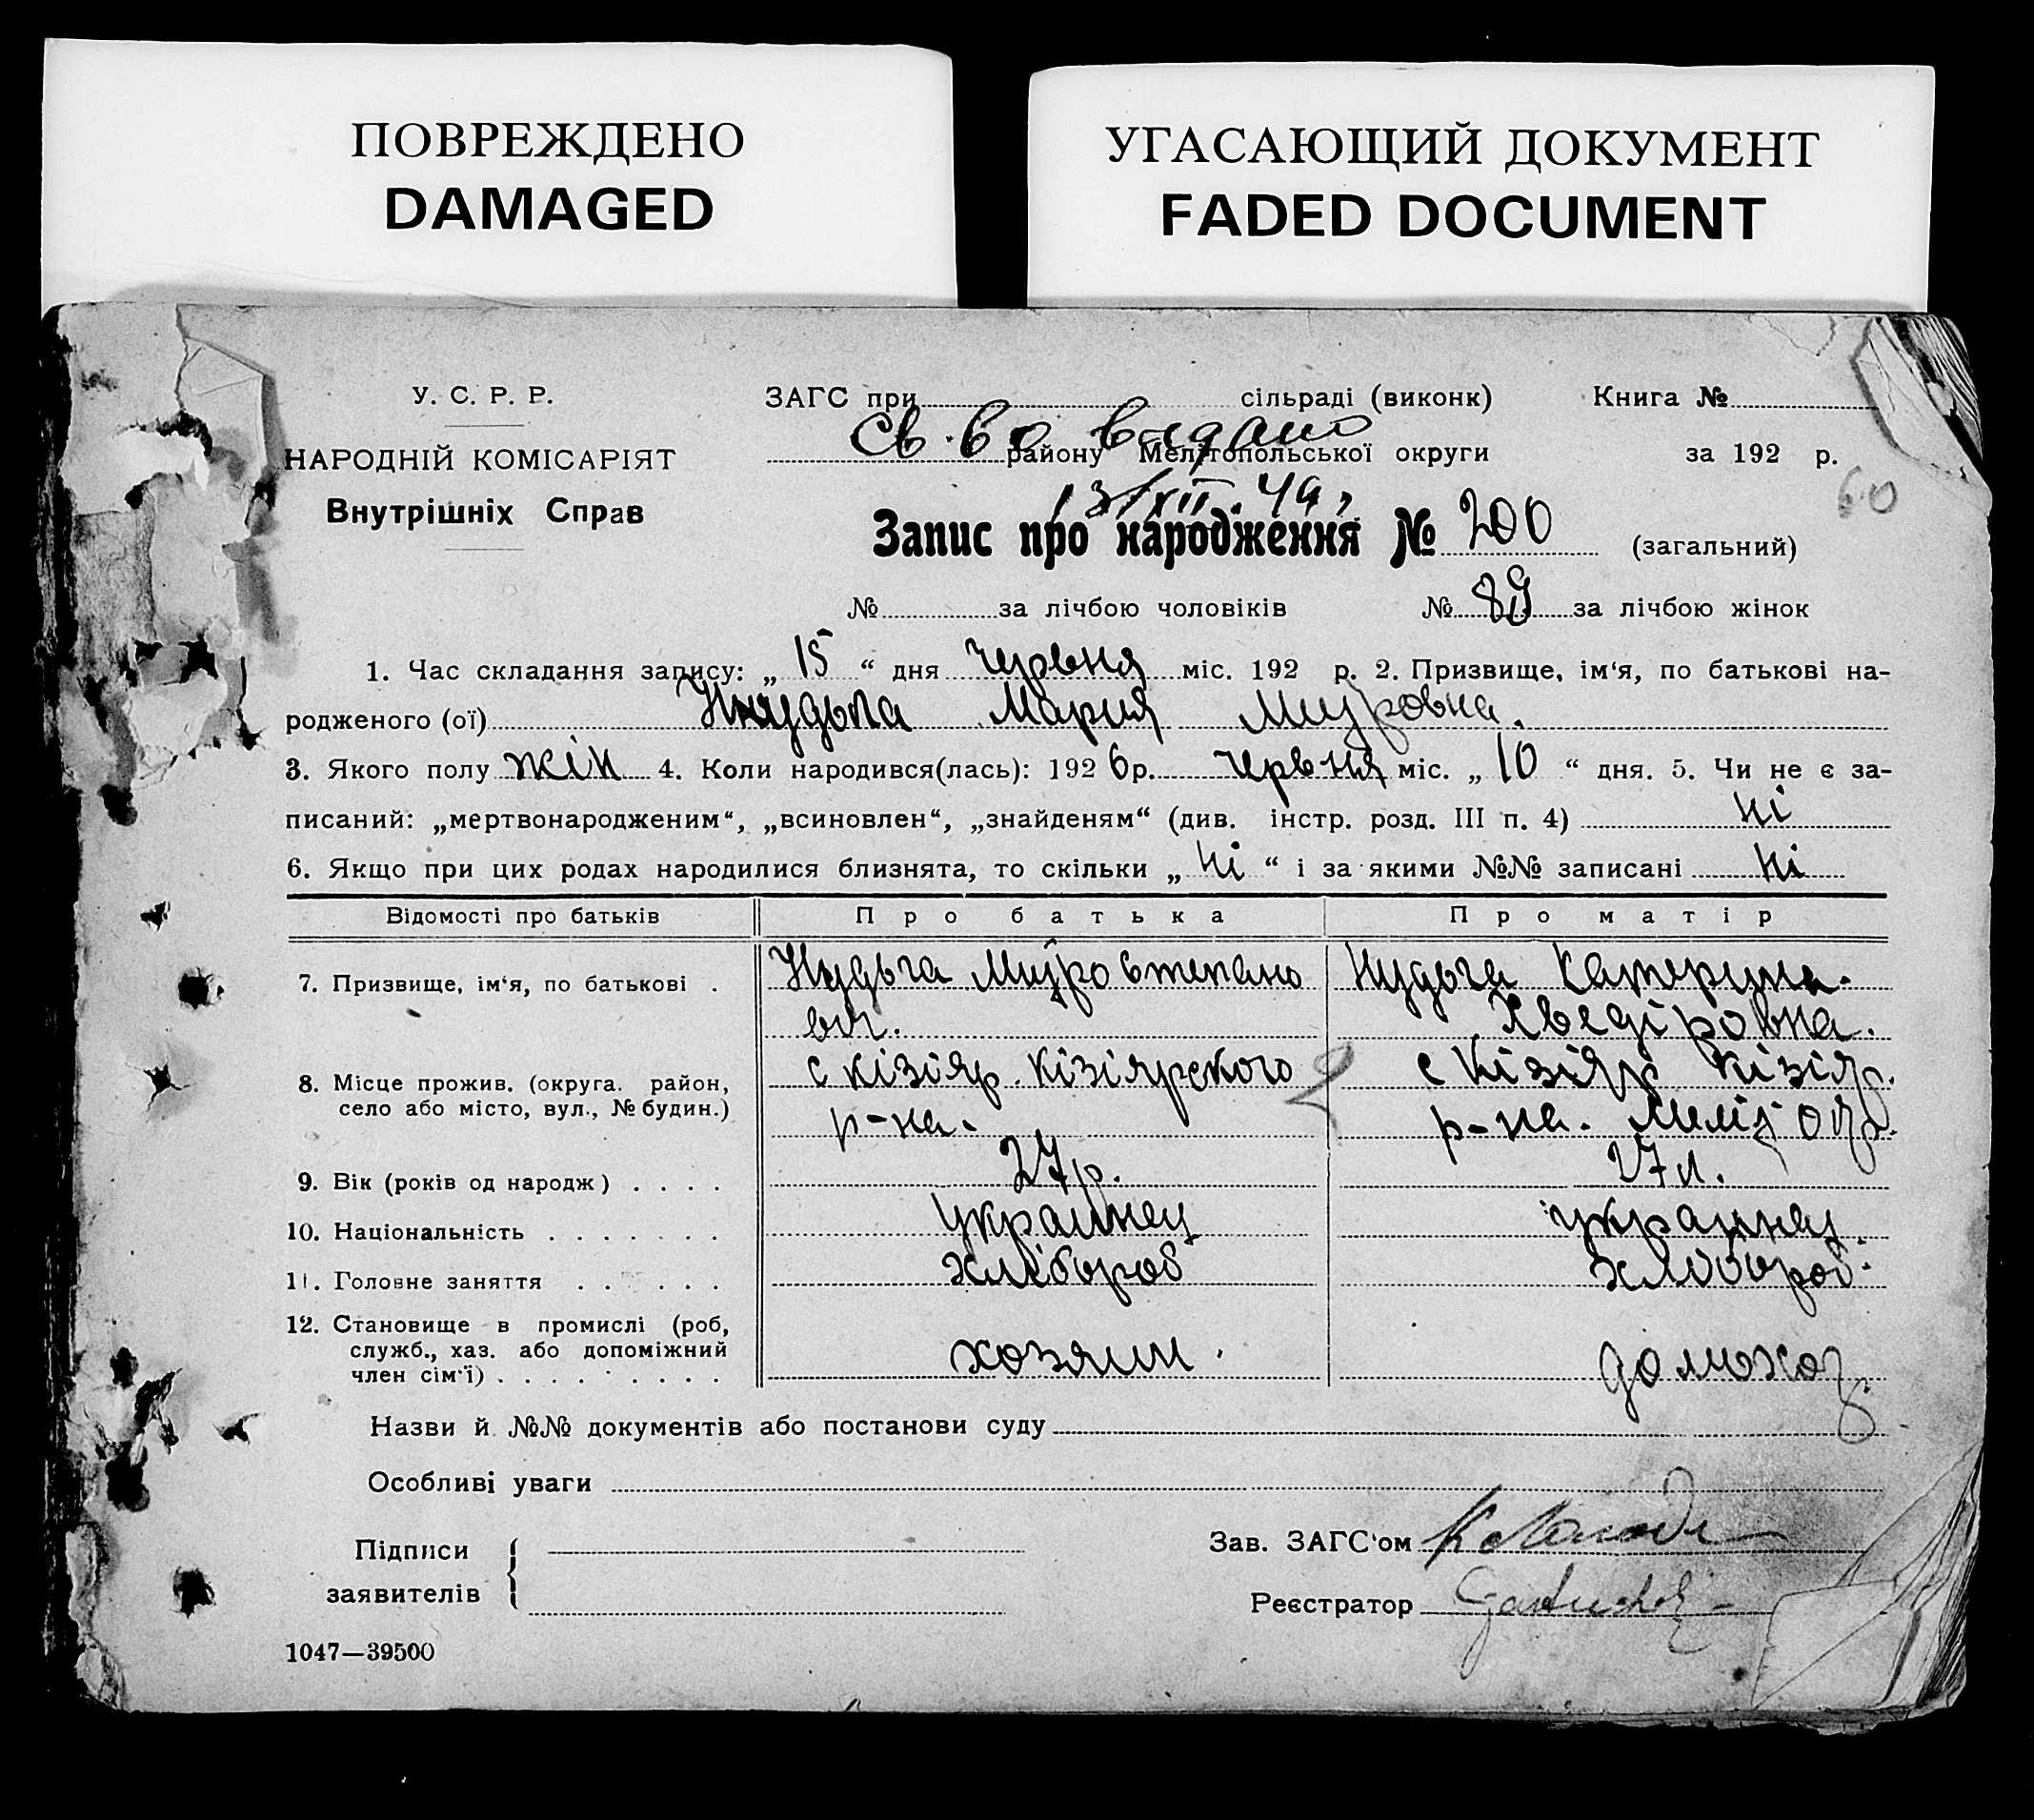 ПОВРЕЖДЕНО
DAMAGED
УГАСАЮЩИЙ ДОКУМЕНТ
FADED DOCUMENT
У. С. Р. Р.
НАРОДНІЙ КОМІСАРІЯТ
Внутрішніх Справ
ЗАГС при сільраді (виконк) Книга №
Св-во видано
району Мелітопольської округи за 192 р.
13/XII. 49 60
Запис про народження № 200 (загальний)
№ за лічбою чоловіків № 89 за лічбою жінок
1. Час складання запису: „ 15 “ дня червня міс. 192 р. 2. Призвище, ім‘я, по батькові на-
родженого (ої) Нудьга Мария Мидровна.
3. Якого полу жін 4. Коли народився(лась): 192 6 р. червня міс. „ 10 “ дня. 5. Чи не є за-
писаний: „мертвонародженим“, „всиновлен“, „знайденям“ (див. інстр. розд. III п. 4) ні
6. Якщо при цих родах народилися близнята, то скільки „ ні “ і за якими №№ записані ні
Відомості про батьків Про батька Про матір
7. Призвище, ім‘я, по батькові . Нудьга Мидро Степано Нудьга Катерина.
вич. Хведіровна.
8. Місце прожив. (округа. район, с кізіяр. кізіярского с Кізіяр Кізіяр.
село або місто, вул., № будин.) р-на. р-на. Меліт окр.
9. Вік (років од народж) . . . . 27 р. 27 л.
10. Національність . . . . . . . украинец украинец.
11. Головне заняття . . . . . . хлібороб хлібороб.
12. Становище в промислі (роб,
служб., хаз. або допоміжний хозяин. домохоз.
член сім‘ї) . . . . . . . . .
Назви й №№ документів або постанови суду
Особливі уваги
Підписи Зав. ЗАГС‘ом
заявителів Реєстратор
1047—39500